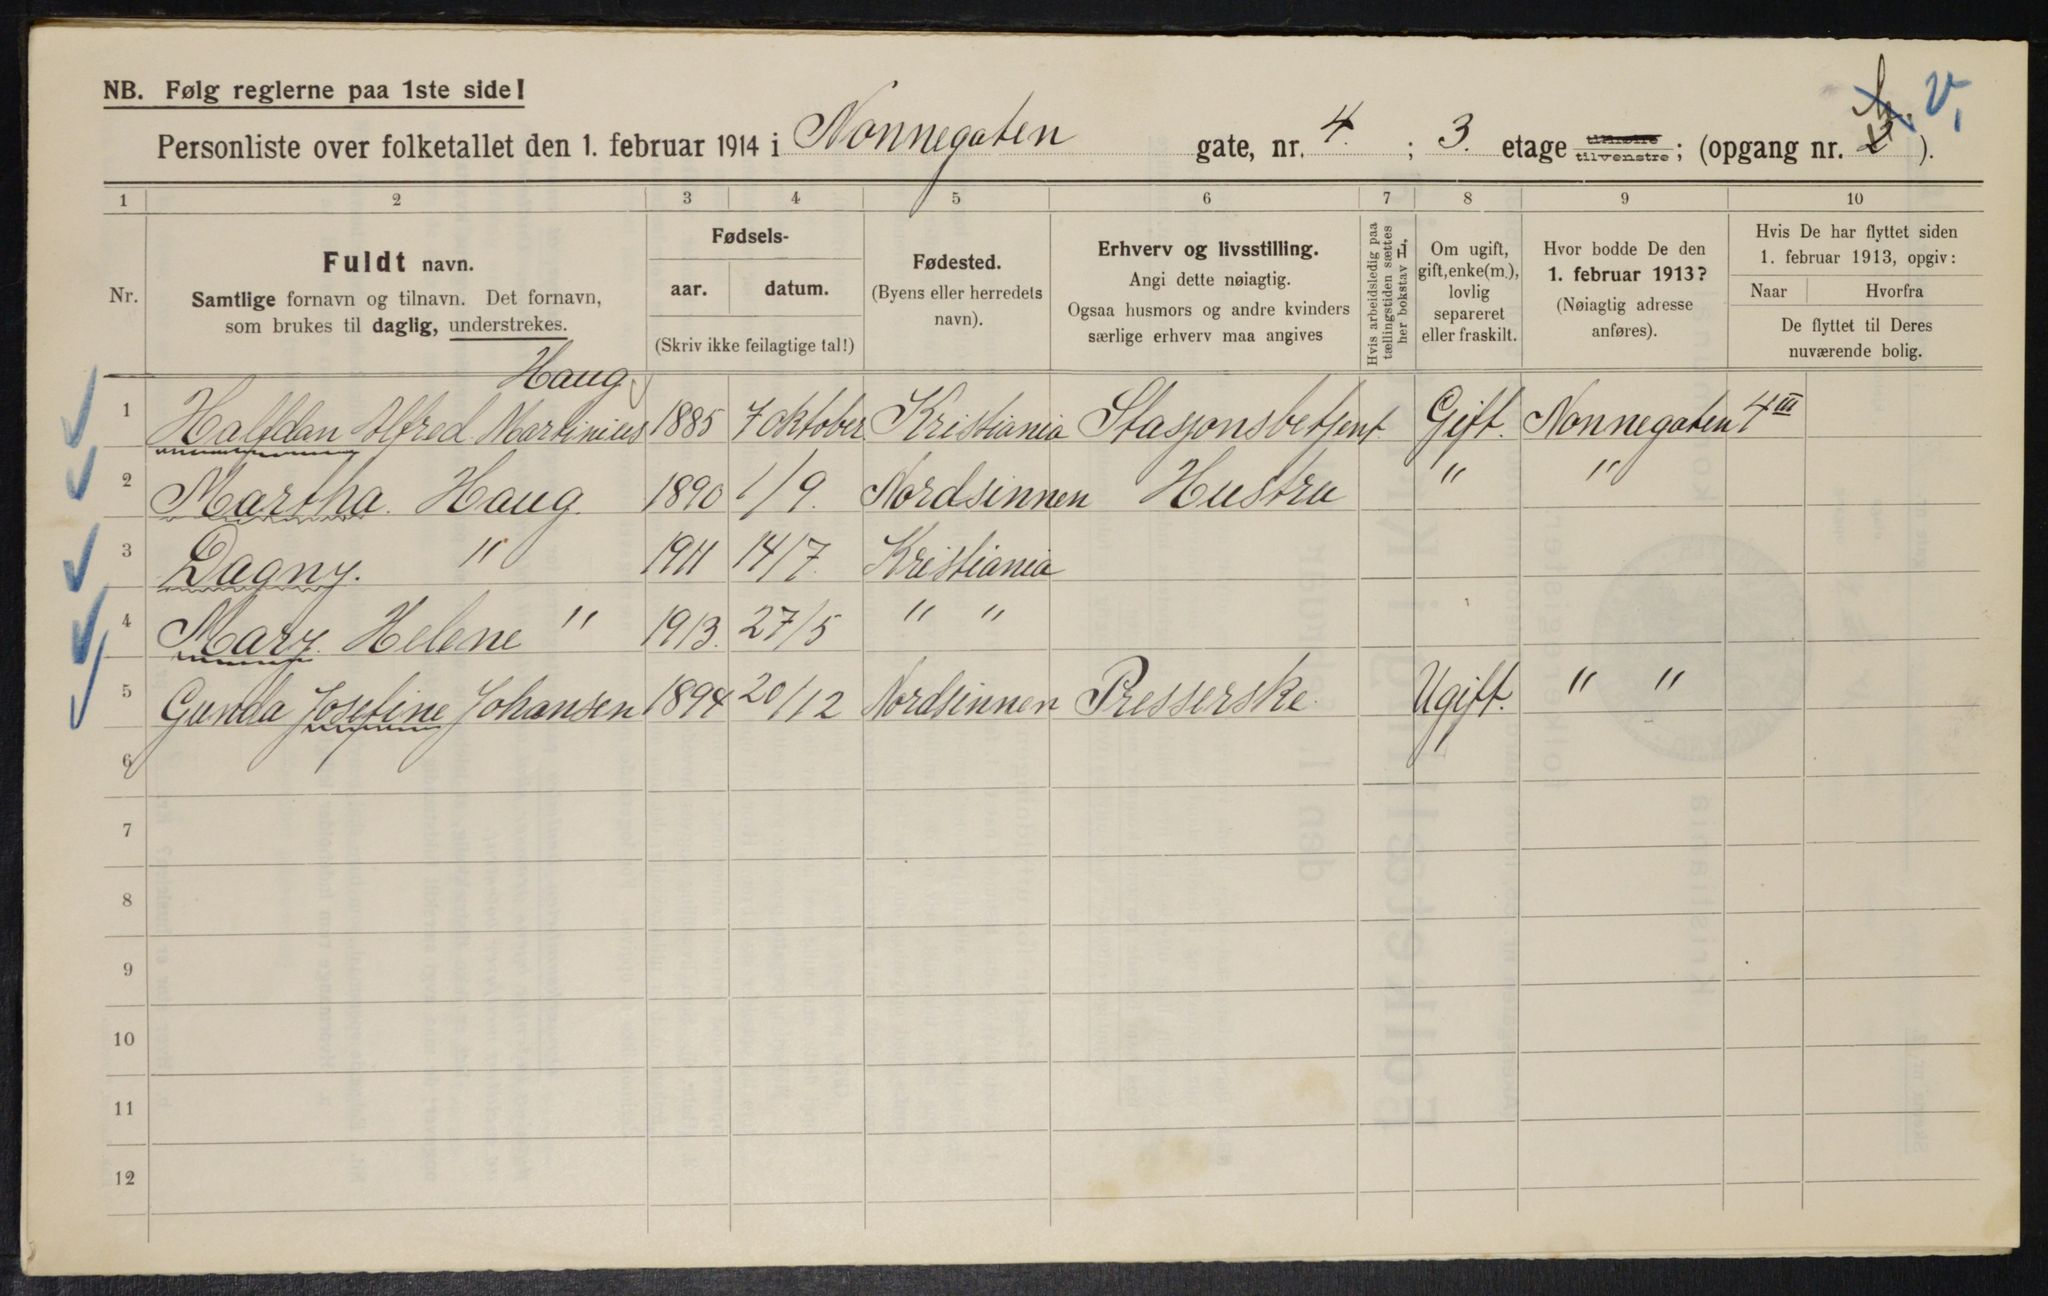 NB. Følg reglerne paa 1ste side!
V,
Personliste over folketallet den 1. februar 1914 i Nonnegaten gate, nr. 4. ; 3. etage tilhøire tilvenstre ; (opgang nr. 2 ).
1 2 3 4 5 6 7 8 9 10
Nr.
Fuldt navn.
Samtlige fornavn og tilnavn. Det fornavn,
som brukes til daglig, understrekes.
Fødsels-
aar. datum.
(Skriv ikke feilagtige tal!)
Fødested.
(Byens eller herredets
navn).
Erhverv og livsstilling.
Angi dette nøiagtig.
Ogsaa husmors og andre kvinders
særlige erhverv maa angives
Hvis arbeidsledig paa
tællingstiden sættes
her bokstav L.
Om ugift,
gift, enke(m.),
lovlig
separeret
eller fraskilt.
Hvor bodde De den
1. februar 1913?
(Nøiagtig adresse
anføres).
Hvis De har flyttet siden
1. februar 1913, opgiv:
Naar Hvorfra
De flyttet til Deres
nuværende bolig.
Haug
1 Halfdan Alfred Martinius 1885 7 oktober Kristiania Stasjonsbetjent Gift. Nonnegaten 4 III
2 Martha. Haug. 1890 1/9. Nordsinnen Hustru " "
3 Dagny. " 1911 14/7. Kristiania
4 Mary. Helene " 1913. 27/5 " "
5 Gunda Josefine Johansen 1894 20/12 Nordsinnen Presserske. Ugift. " "
6
7
8
9
10
11
12